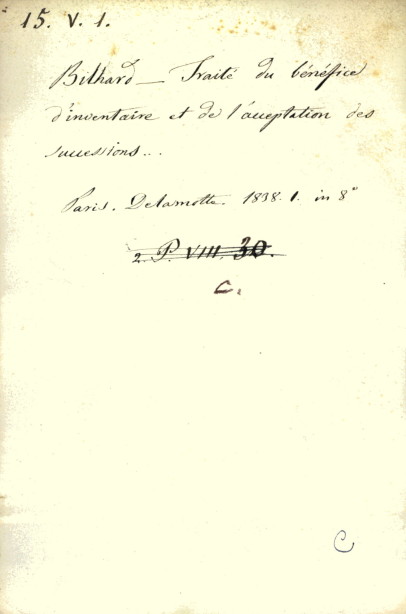 15. V. 1.
Bilhard — Traité du bénéfice
d'inventaire et de l'acceptation des
successions...
Paris. Delamotte. 1838. 1. in 8°
2. P. VIII. 30.
C.
C